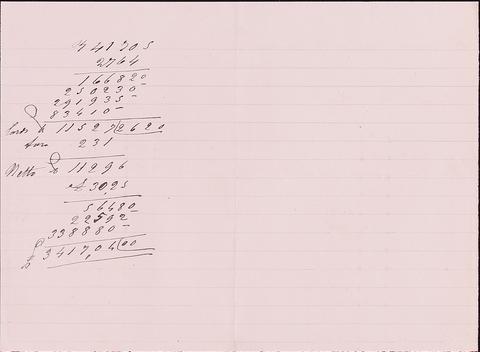 41705
2764
166820
250230
291935
83410
Lordo 11527(2620
Tara 231
Netto 11296
30,25
56480
22592
338880
3417,04(00